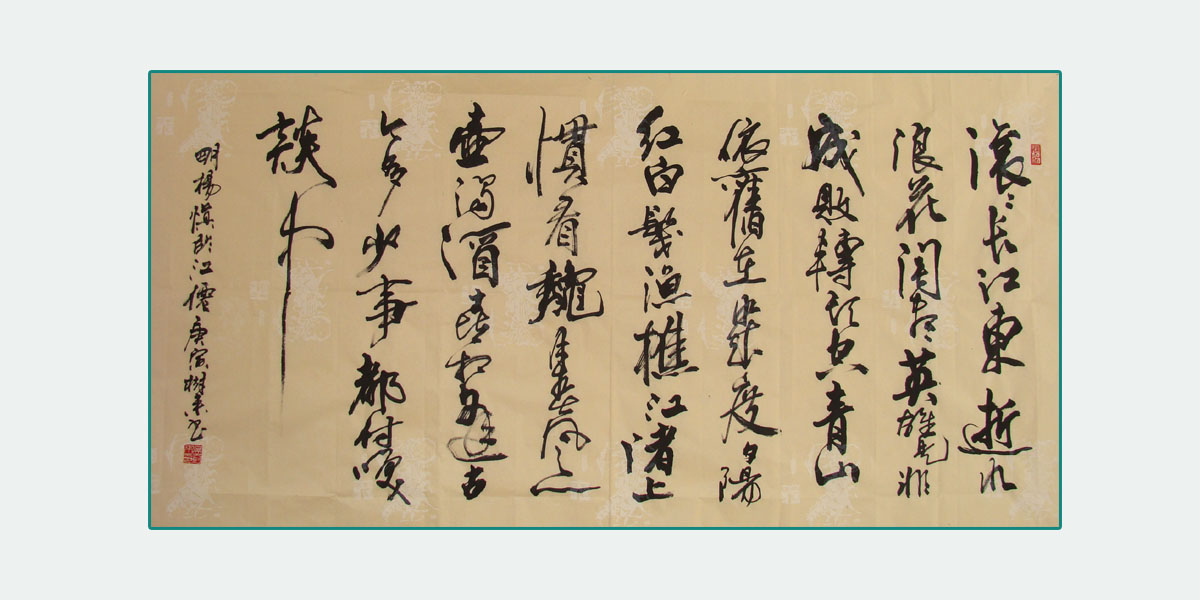 滚〻长江東逝水
浪花淘尽英雄是非
成敗轉頭空青山
依舊在幾度夕陽
红白髮漁樵江渚上
慣看龝月春風一
壺濁酒喜相逢古
今多少事都付笑
談中
明楊慎臨江僊庚寅樹书